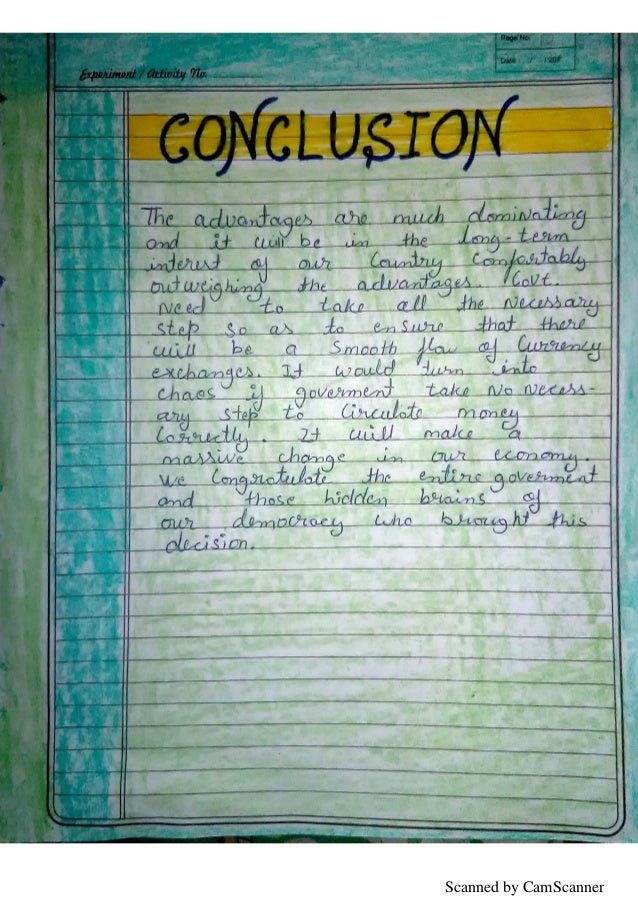 Page No.
Date / /201
Experiment / Activity No.
CONCLUSION
The advantages are much dominating
and it will be in the long-term
interest of our Country Comfortably
outweighing the advantages. Govt.
Need to take all the Necessary
step so as to ensure that there
will be a smooth flow of Currency
exchanges. It would turn into
chaos if goverment take No Necess-
ary step to Circulate money
Correctly. It will make a
massive change in our economy.
We Congratulate the entire goverment
and those hidden brains of
our democracy who brought this
decision.
Scanned by CamScanner